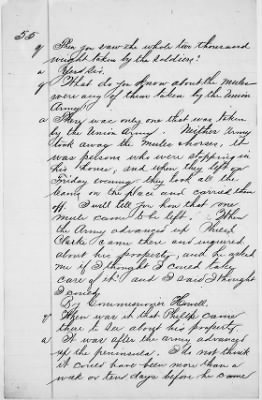 55
q Then you saw the whole two thousand
weight taken by the soldiers?
a Yes Sir.
q What do you know about the mules
were any of them taken by the Union
Army?
a There was only one that was taken
by the Union Army. Neither Army
took away the mules & horses, it
was persons who were stopping in
his house, and when they left on
Friday evening they took all the
teams on the place and carried them
off. I will tell you how that one
mule came to be left. When
the Army advanced up Philip
Clarke came there and inquired
about his property, and he asked
me if I thought I could take
care of it and I said I thought
I could.
By Commissioner Howell.
q When was it that Philip came
there to see about his property
a It was after the army advanced
up the peninsula. I do not think
it could have been more than a
week or ten days before he came